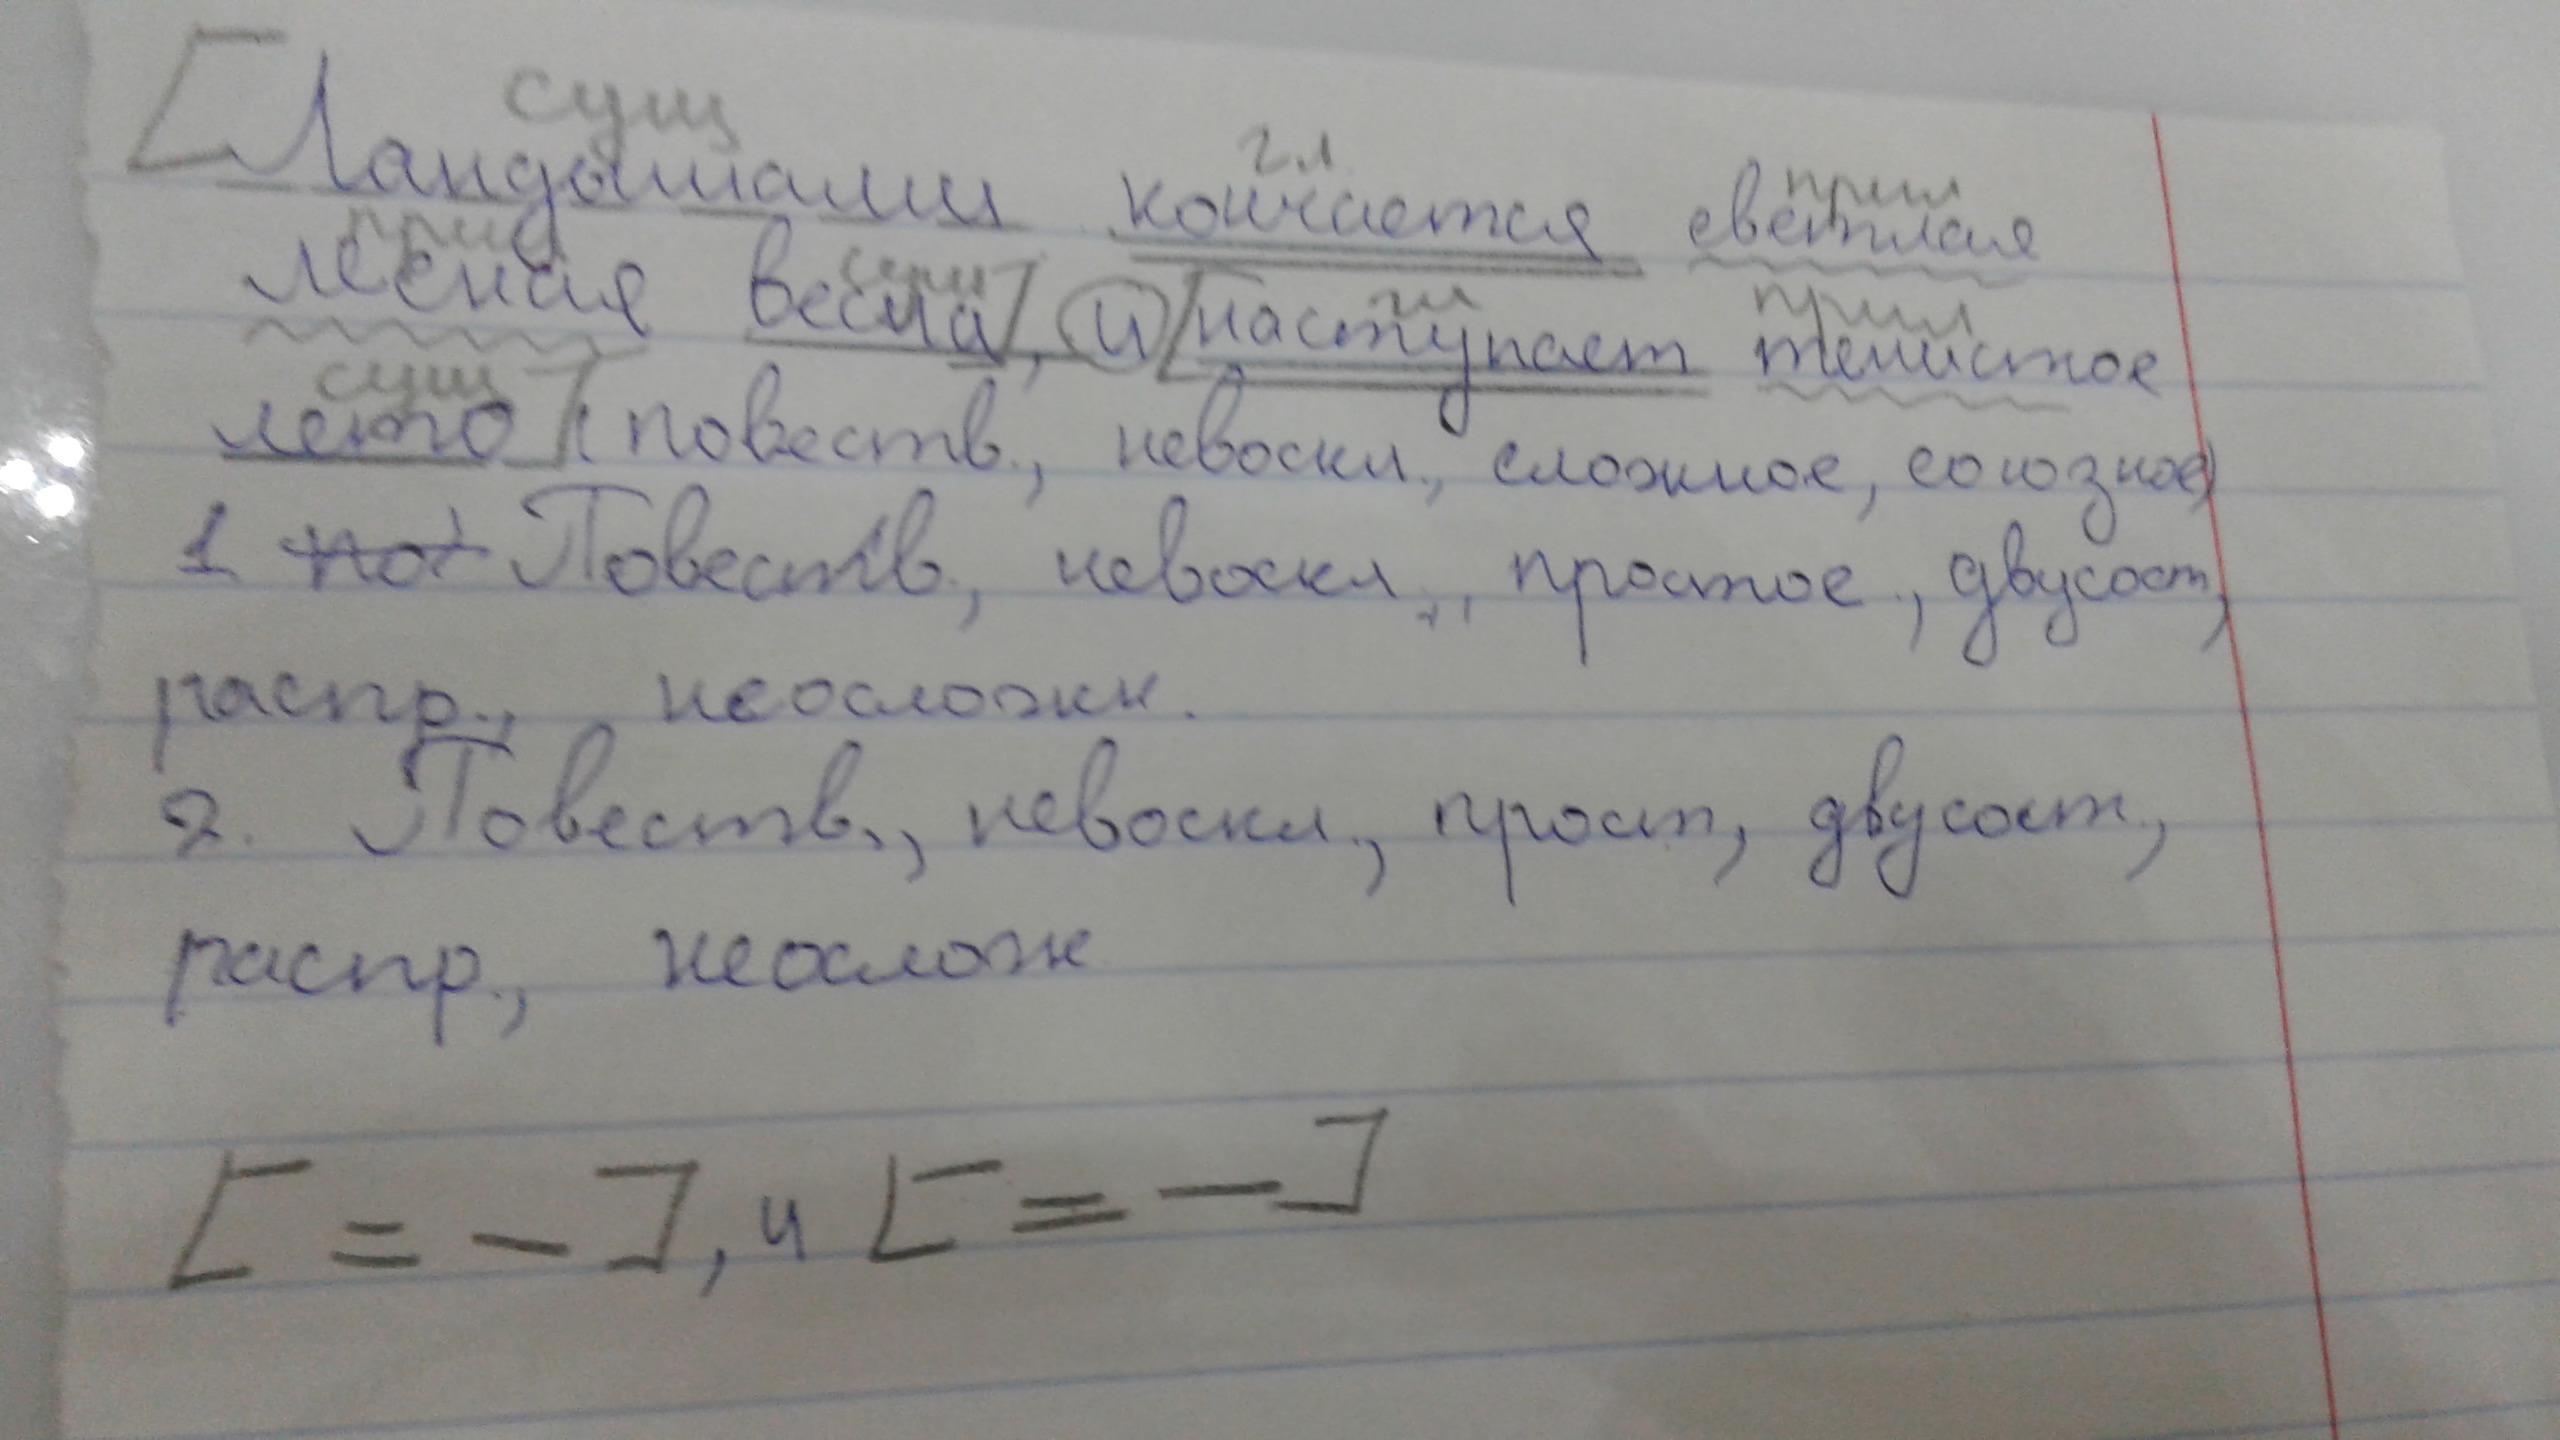 сущ гл прил
Ландышами кончается светлая
прил сущ гл прил
лесная весна, и наступает тенистое
сущ
лето (повеств., невоскл., сложное, союзное)
1 пov Повеств., невоскл., простое., двусост,
распр., неосложн.
2. Повеств., невоскл., прост, двусост.,
распр., неослож
[= –], и [= –]